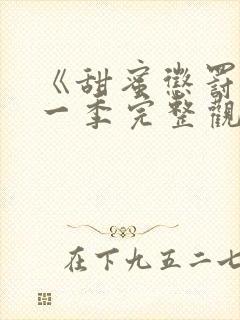 《甜蜜懲罰
一季完整觀
在下九五二七